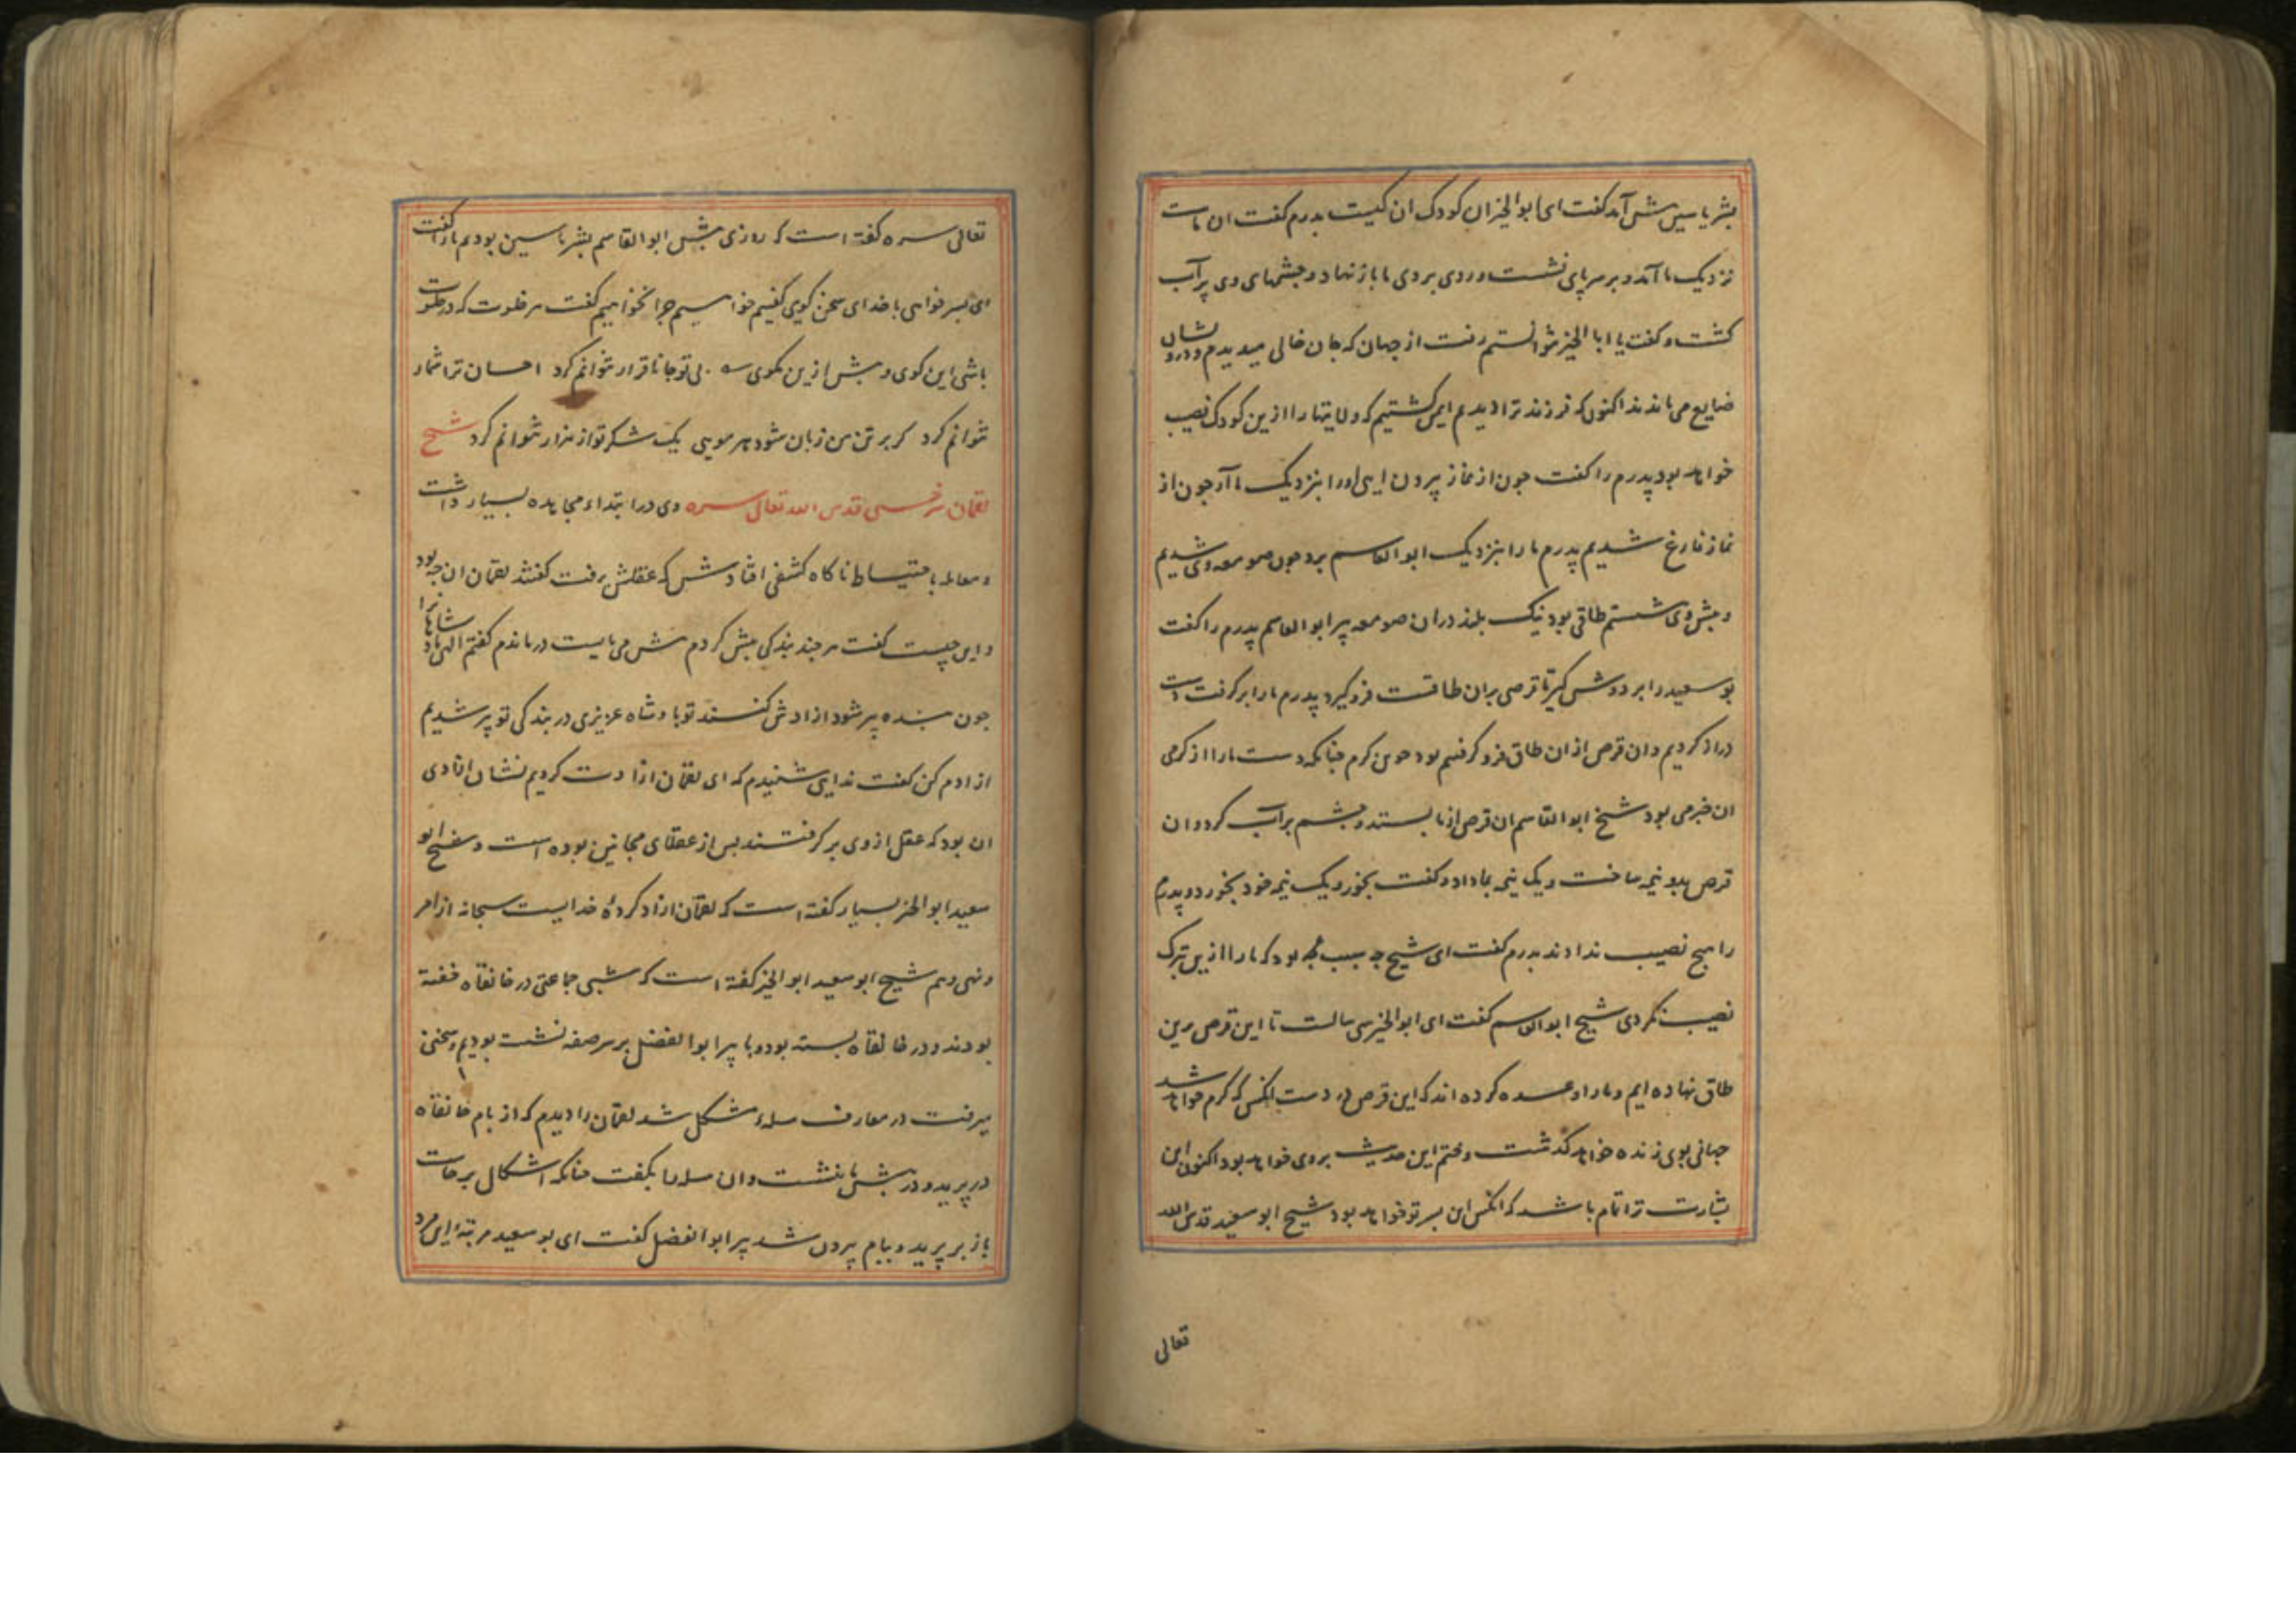 بشر یاسین پیش آمد کفت ای ابو الخیر ان کودک ان کیست بدرم کفت ان ماست
نزدیک ما آمد و بر سر پای نشست و روی بر روی ما باز نهاد و جشمهای وی پر آب
کشت و کفت یا ابا الخیر نتوانستم رفت از جهان که جان خالی میدیدم و درویشان
ضایع می ماندند اکنون که فرزند ترا دیدم ایمن کشتیم که ولایتها را ازین کودک نصیب
خواهد بود پدرم را کفت جون از نماز بیرون ایی او را بنزدیک ما آر جون از
نماز فارغ شدیم پدرم ما را بنزدیک ابو القاسم برد جون صومعه وی شدیم
و پیش وی نشستم طاقی بود نیک بلند دران صومعه پیر ابو القاسم پدرم را کفت
بو سعید را بر دوش کیر تا قرصی بران طاقست فرو کیرد پدرم ما را بر کرفت دست
دراز کردیم و ان قرص از ان طاق فرو کرفتیم بود جوین کرم جنانکه دست ما را از کرمی
ان خبر می بود شیخ ابو القاسم ان قرص از ما بستد و جشم بر آب کرد و ان
قرص بدو نیمه ساخت و یک نیمه بما داد و کفت بخور و یک نیمه خود بخورد و پدرم
را هیج نصیب نداد بدرم کفت ای شیخ جه سبب بود که ما را ازین تبرک
نصیب نکردی شیخ ابو القاسم کفت ای ابو الخیر سی سالست تا این قرص برین
طاق نهاده ایم و ما را وعده کرده اند که این قرص در دست انکس که کرم خواهد شد
جهانی بوی زنده خواهد کذشت و ختم این حدیث بر وی خواهد بود اکنون این
بشارت ترا تمام باشد که انکس این بسر تو خواهد بود شیخ ابو سعید قدس الله
تعالی
تعالی سره کفته است که روزی پیش ابو القاسم بشر یاسین بودیم ما را کفت
ای بسر خواهی با خدای سخن کویی کفتیم خواهیم جرا نخواهیم کفت هر خلوت که در خلوت
باشی این کوی و بیش ازین مکوی سه بی تو جانا قرار نتوانم کرد احسان ترا شمار
نتوانم کرد کر بر تن من زبان شود هر مویی یک شکر تو از هزار نتوانم کرد شیخ
لقمان سرخسی قدس الله تعالی سره وی در ابتداء مجاهده بسیار داشت
و معامله باحتیاط ناکاه کشفی افتادش که عقلش برفت کفتند لقمان ان جه بود
و این چیست کفت هر جند بندکی بیش کردم بیش می بایست درماندم کفتم الهی بادشاهانرا
جون بنده پیر شود ازادش کنند تو بادشاه عزیزی در بندکی تو پیر شدیم
ازادم کن کفت ندایی شنیدم که ای لقمان ازادت کردیم نشان ازادی
ان بود که عقل از وی بر کرفتند بس از عقلای مجانین بوده است و شیخ ابو
سعید ابو الخیر بسیار کفته است که لقمان ازاد کردهٔ خدایست سبحانه از امر
و نهی و هم شیخ ابو سعید ابو الخیر کفته است که شبی جماعتی در خانقاه خفته
بودند و در خانقاه بسته بود و با پیر ابو الفضل بر سر صفه نشسته بودیم و سخنی
میرفت در معارف مسلهء مشکل شد لقمان را دیدم که از بام خانقاه
در پرید و در پیش ما بنشست و ان مسله را بکفت جنانکه اشکال برخاست
باز بر پرید و ببام بیرون شد پیر ابو الفضل کفت ای بو سعید مرتبهٔ این مرد